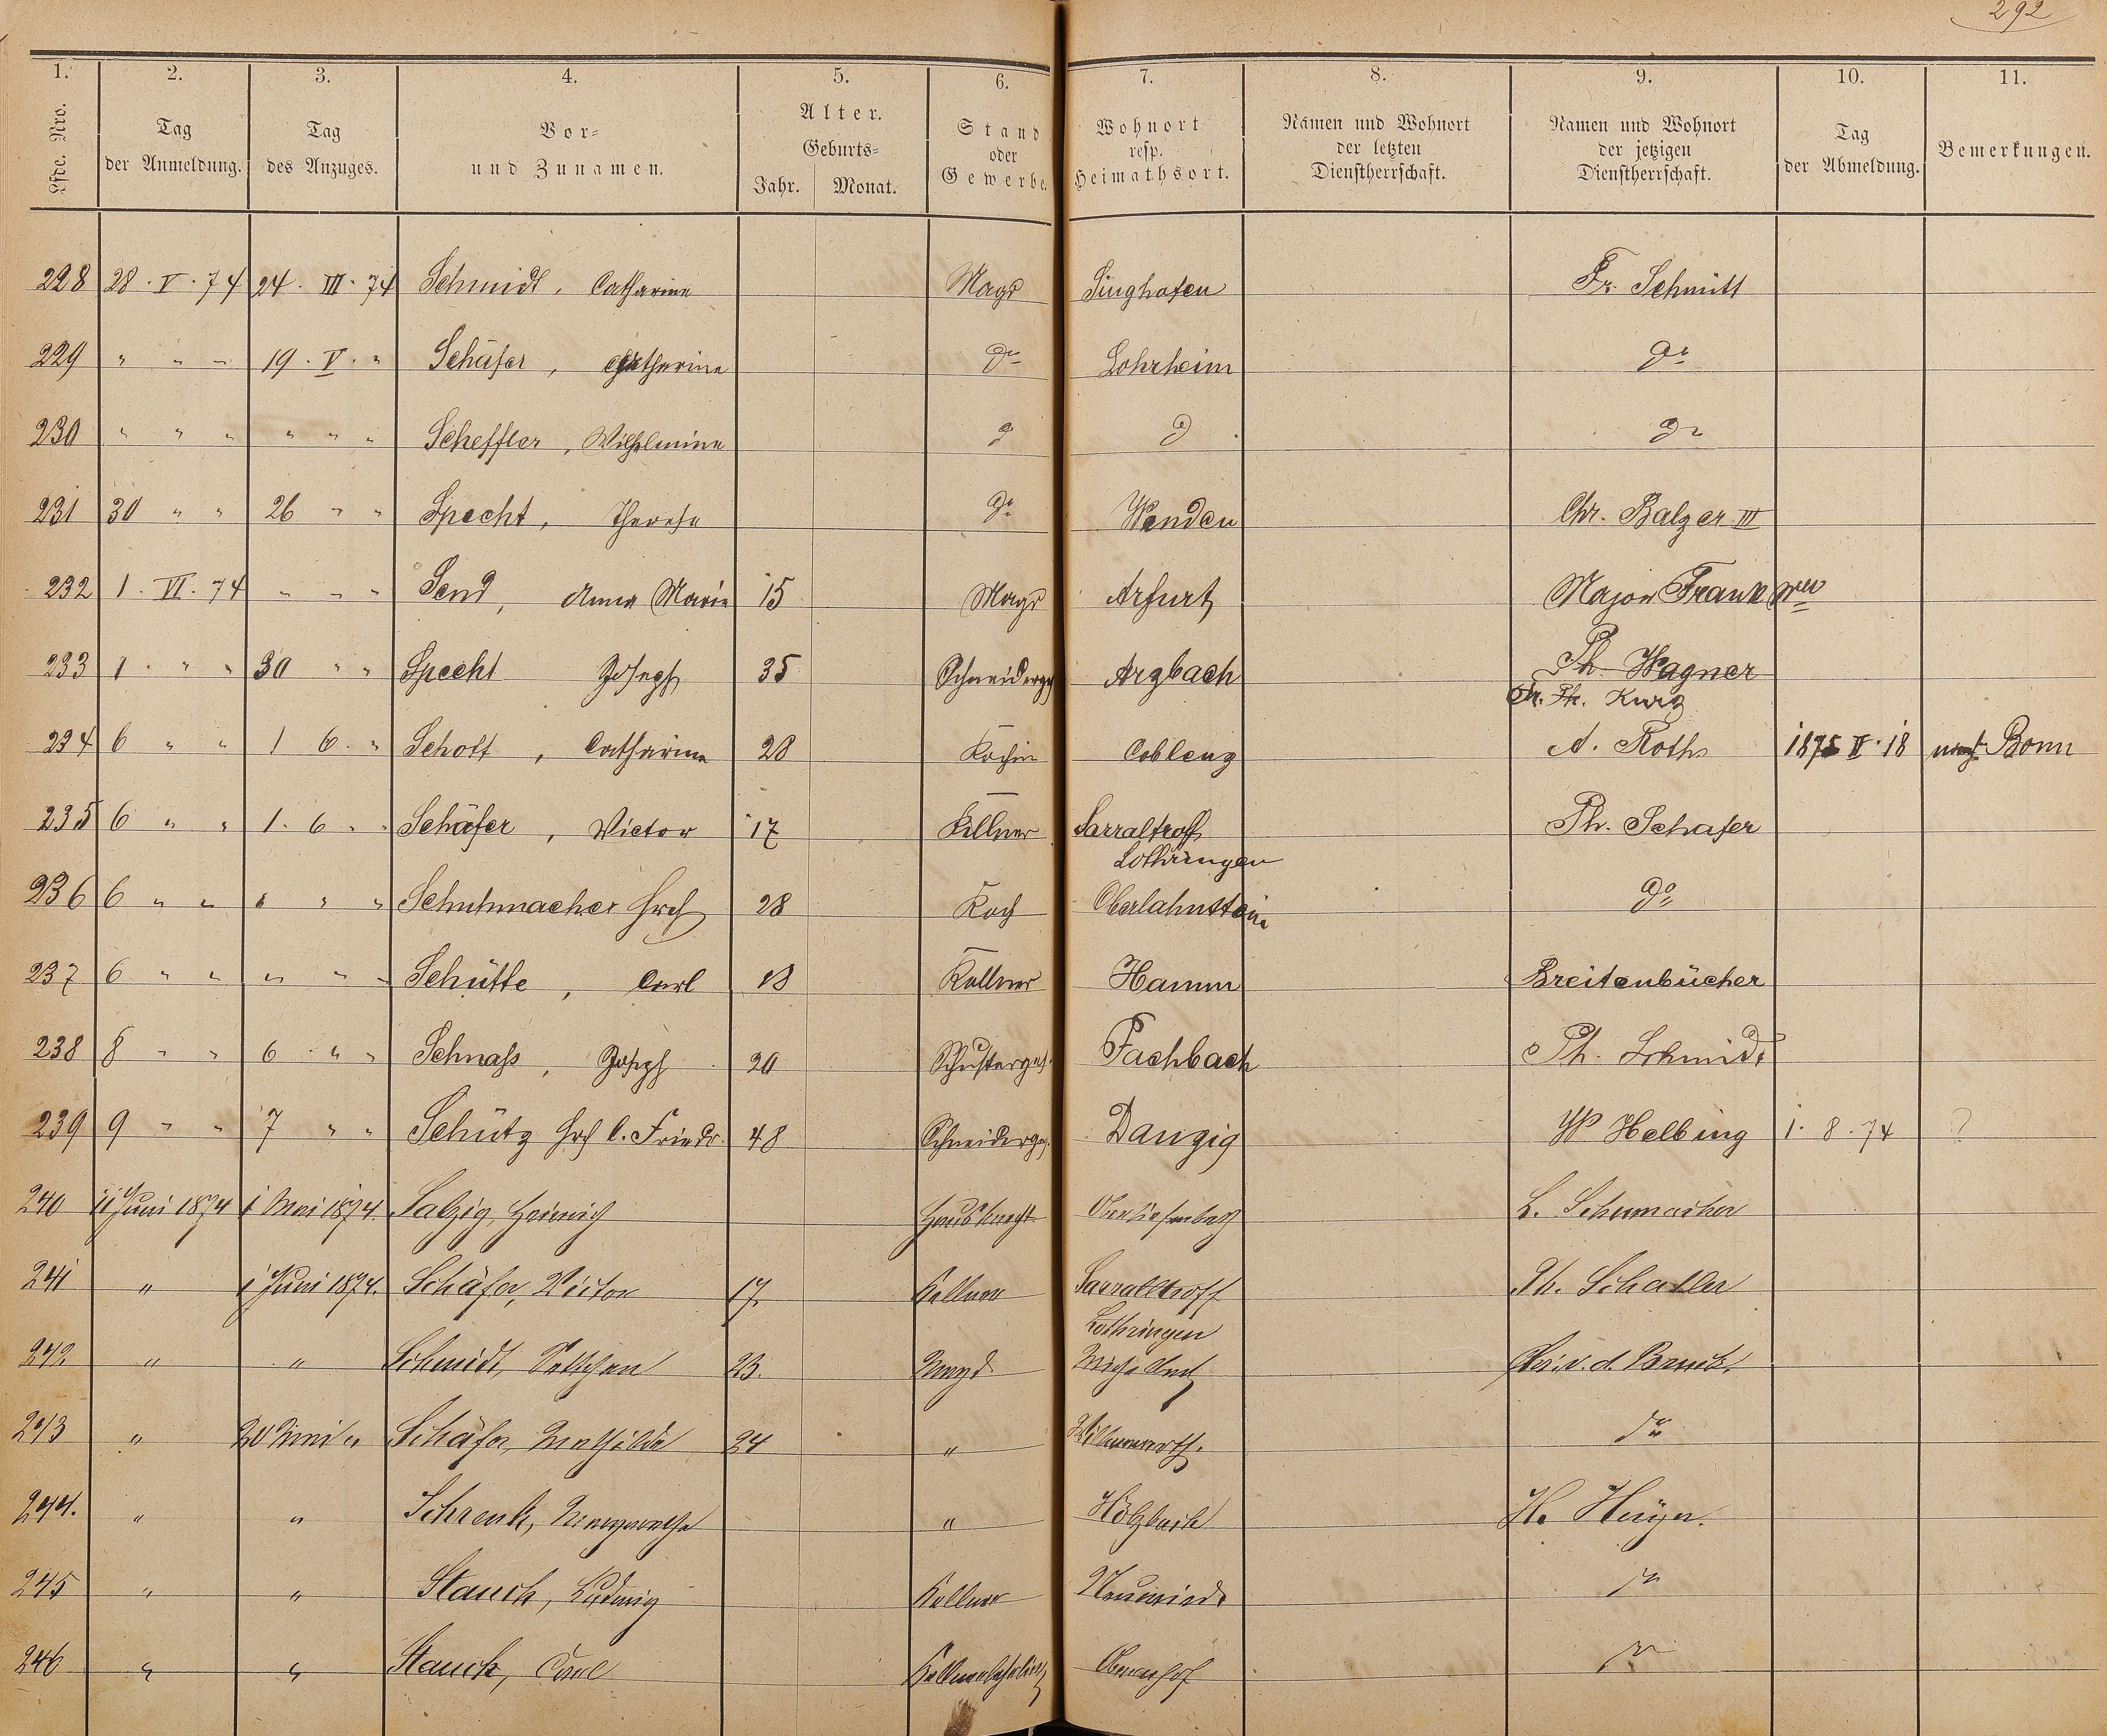 292
1. 2. 3. 4. 5. 6. 7. 8. 9. 10. 11.
Lfde. Nro. Tag der Anmeldung. Tag des Anzuges. Vor- und Zunamen. Alter. Geburts- Jahr. Monat. Stand oder Gewerbe. Wohnort resp. Heimathsort. Namen und Wohnort der letzten Dienstherrschaft. Namen und Wohnort der jetzigen Dienstherrschaft. Tag der Abmeldung. Bemerkungen.
228 28. V. 74 24. III. 74 Schmidt, Catharine Magd Singhofen Fr. Schmitt
229 " " " 19. V. " Schäfer, Catherine do Lohrheim do
230 " " " " " " Scheffler, Wilhelmine do do do
231 30 " " 26 " " Specht, Therese do Wenden Chr. Balzer III
232 1. VI. 74 " " " Send, Anna Maria 15 Magd Arfurt Major Frank Wwe
233 1. " " 30 " " Specht Joseph 35 Schneiderges Arzbach Ph. Wagner
Ph. Kurz
234 6 " " 1 6. " Schott, Catharine 28 Köchin Coblenz A. Roth 1875 II. 18 nach Bonn
235 6 " " 1. 6 " Schäfer, Victor 17 Kellner Sarraltroff Ph. Schafer
Lothringen
236 6 " " " " " Schuhmacher Hrch 28 Koch Oberlahnstein do
237 6 " " " " " Schütte, Carl 18 Kellner Hamm Breitenbücher
238 8 " " 6 " " Schnass, Joseph 20 Schusterges. Fachbach Ph. Schmidt
239 9 " " 7 " " Schütz Hrch C. Friedr. 48 Schneiderges. Danzig W Helbing 1. 8. 74 ?
240 11 Juni 1874 1 Mai 1874. Salzig, Heinrich Hausknecht L. Schumacher
241 " 1 Juni 1874. Schäfer, Victor 17. Kellner Sarraltroff Ph. Schafer
Lothringen
242 " " Schmidt, 23. Magd v. d. Bruck.
243 " 20 " Schäfer, Mathilde 24 " do
244. " " Schrenk, Margarethe " Holzbach H.
245 " " Stauch, Ludwig Kellner Neuwied do
246 " " Stauch, Carl Kellnerlehrling Obernhof do